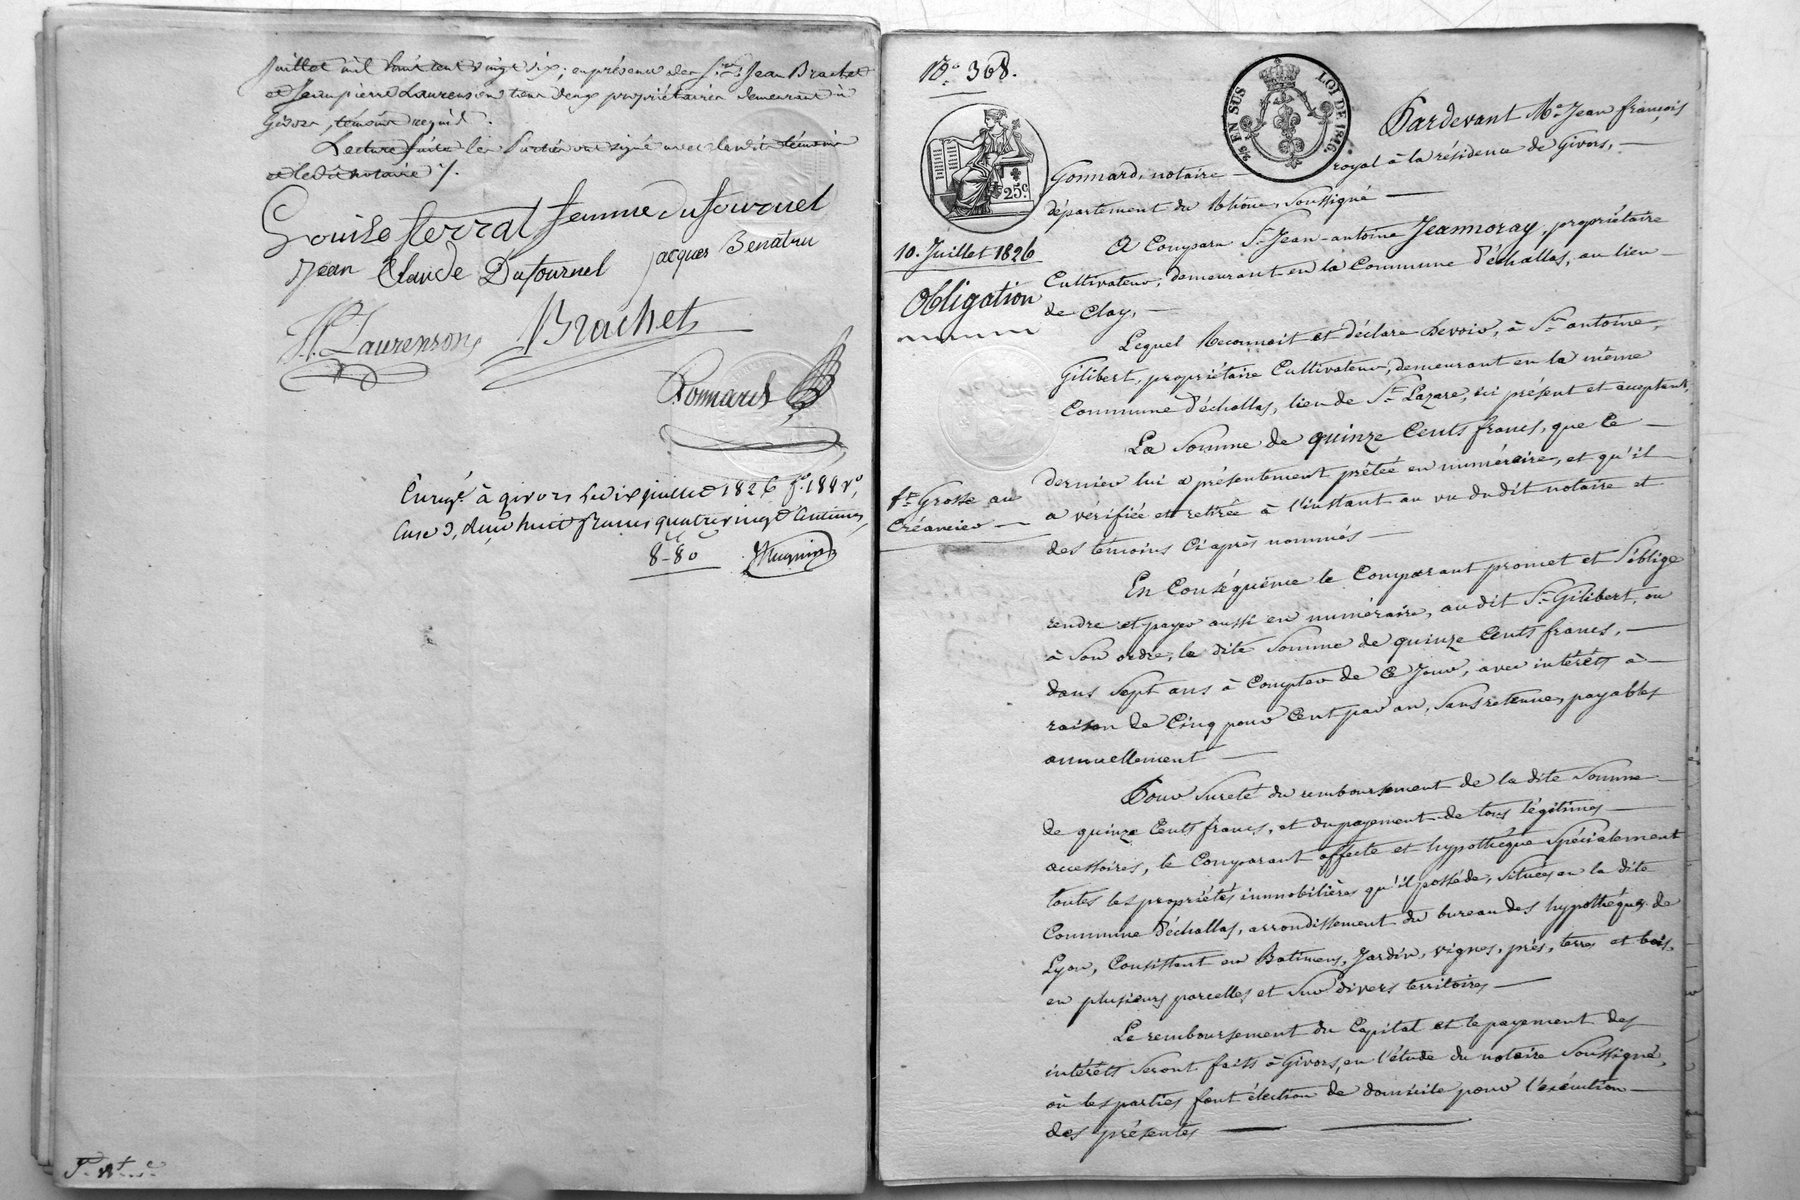 juillet mil huit cent vingt six, en présence des Srs Jean Brachet
et Jean pierre Laurenson tous deux propriétaires demeurant à
Givors, témoins requis.
Lecture faite les Parties ont signé avec lesdits témoins
et ledit notaire /.
Louise ferrat femme dufournel
Jean Claude Dufournel jacques Benatru
J.P. Laurenson Brachet
Gonnard
Enregé à givors le dix juillet 1826 fo. 188 Vo,
Case 3, reçu huit francs quatre vingt Centimes,
8-80
No. 368.
25 EN SUS
LOI DE 1816.
25c.
10. Juillet 1826
Obligation
1re Grosse au
Créancier —
Pardevant Me. Jean françois
Gonnard, notaire — royal à la résidence de Givors, —
département du Rhône, Soussigné —
A Comparu Sr. Jean-antoine Jeannoray, propriétaire
Cultivateur, demeurant en la Commune d'échallas, au lieu —
de Clay, —
Lequel Reconnoit et déclare Devoir, à Sr. antoine,
Gilibert, propriétaire Cultivateur, demeurant en la même
Commune d'échallas, lieu de St. Lazare, ici présent et acceptant,
La Somme de quinze Cents francs, que Ce —
dernier lui a présentement prêtée en numéraire, et qu'il —
a vérifiée et retirée à l'instant au vu dudit notaire et
des témoins Ci après nommés —
En Conséquence le Comparant promet et S'oblige
rendre et payer aussi en numéraire, audit Sr. Gilibert, ou
à Son ordre, la dite Somme de quinze Cents francs, —
dans Sept ans à Compter de Ce Jour, avec intérêts à —
raison de Cinq pour Cent par an, Sans retenue, payables
annuellement —
Pour Sureté du remboursement de la dite Somme —
de quinze Cents francs, et du payement de tous légitimes —
accessoires, le Comparant affecte et hypothèque Spécialement
toutes les propriétés immobilières qu'il possède, Situées en la dite
Commune d'échallas, arrondissement du bureau des hypothèques de
Lyon, Consistant en Batimens, Jardin, vignes, prés, terres et bois,
en plusieurs parcelles et Sur divers territoires —
Le remboursement du Capital et le payement des
intérêts Seront faits à Givors, en l'étude du notaire Soussigné,
où les parties font élection de domicile pour l'exécution —
des présentes —